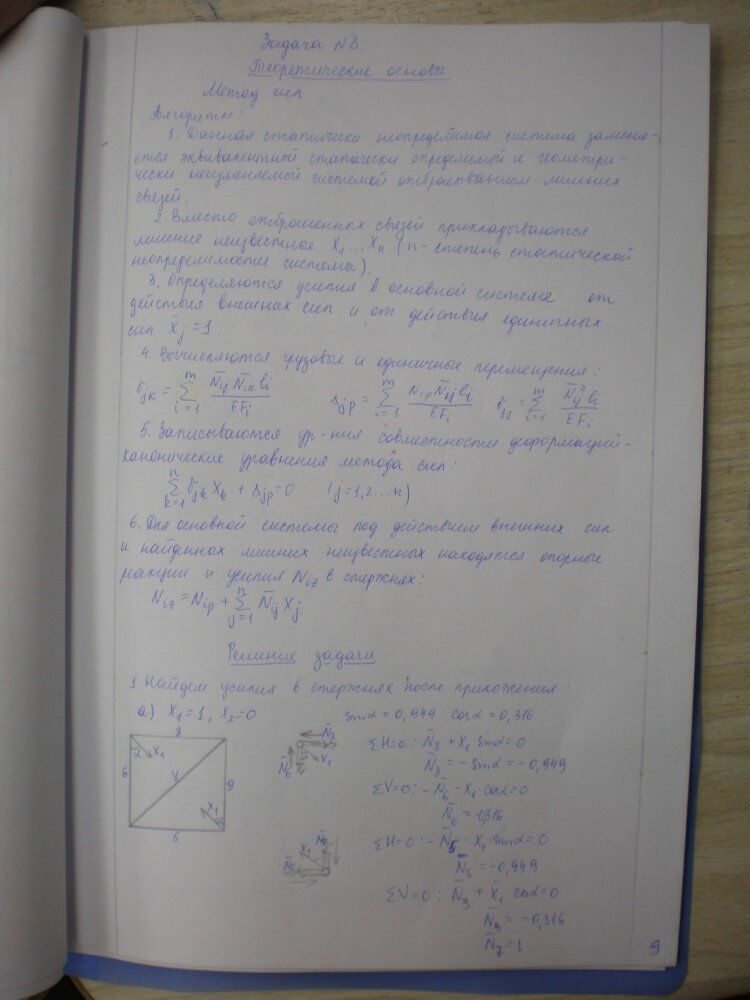 Задача №3.
Теоретические основы
Метод сил
Алгоритм:
1. Данная статически неопределимая система заменя-
ется эквивалентной статически определимой и геометри-
чески неизменяемой системой отбрасыванием лишних
связей.
2. Вместо отброшенных связей прикладываются
лишние неизвестные X₁...Xₙ (n - степень статической
неопределимости системы).
3. Определяются усилия в основной системе от
действия внешних сил и от действия единичных
сил X̄j = 1.
4. Вычисляются грузовые и единичные перемещения:
δjk = Σ(i=1, m) N̄ij N̄ik li / EFi    Δjp = Σ(i=1, m) Nip N̄ij li / EFi    δjj = Σ(i=1, m) N̄ij² li / EFi
5. Записываются ур-ния совместности деформаций-
канонические уравнения метода сил:
Σ(k=1, n) δjk Xk + Δjp = 0    (j = 1,2...n)
6. Для основной системы под действием внешних сил
и найденных лишних неизвестных находятся опорные
реакции и усилия Niz в стержнях:
Niz = Nip + Σ(j=1, n) N̄ij Xj.
Решение задачи.
1. Найдем усилия в стержнях после приложения:
а) X₁=1; X₂=0    sinα = 0,949  cosα = 0,316
8
α X₁
6 9
X₁
5
N̄8
N̄6 X₁
ΣH=0: N̄8 + X₁ sinα = 0
N̄8 = -sinα = -0,949
ΣV=0: -N̄6 - X₁ cosα = 0
X₁
N̄5
ΣH=0: -N̄5 - X₁ · sinα = 0
N̄5 = -0,949
ΣV=0: N̄9 + X̄₁ · cosα = 0
N̄9 = -0,316
N̄7 = 1.
9